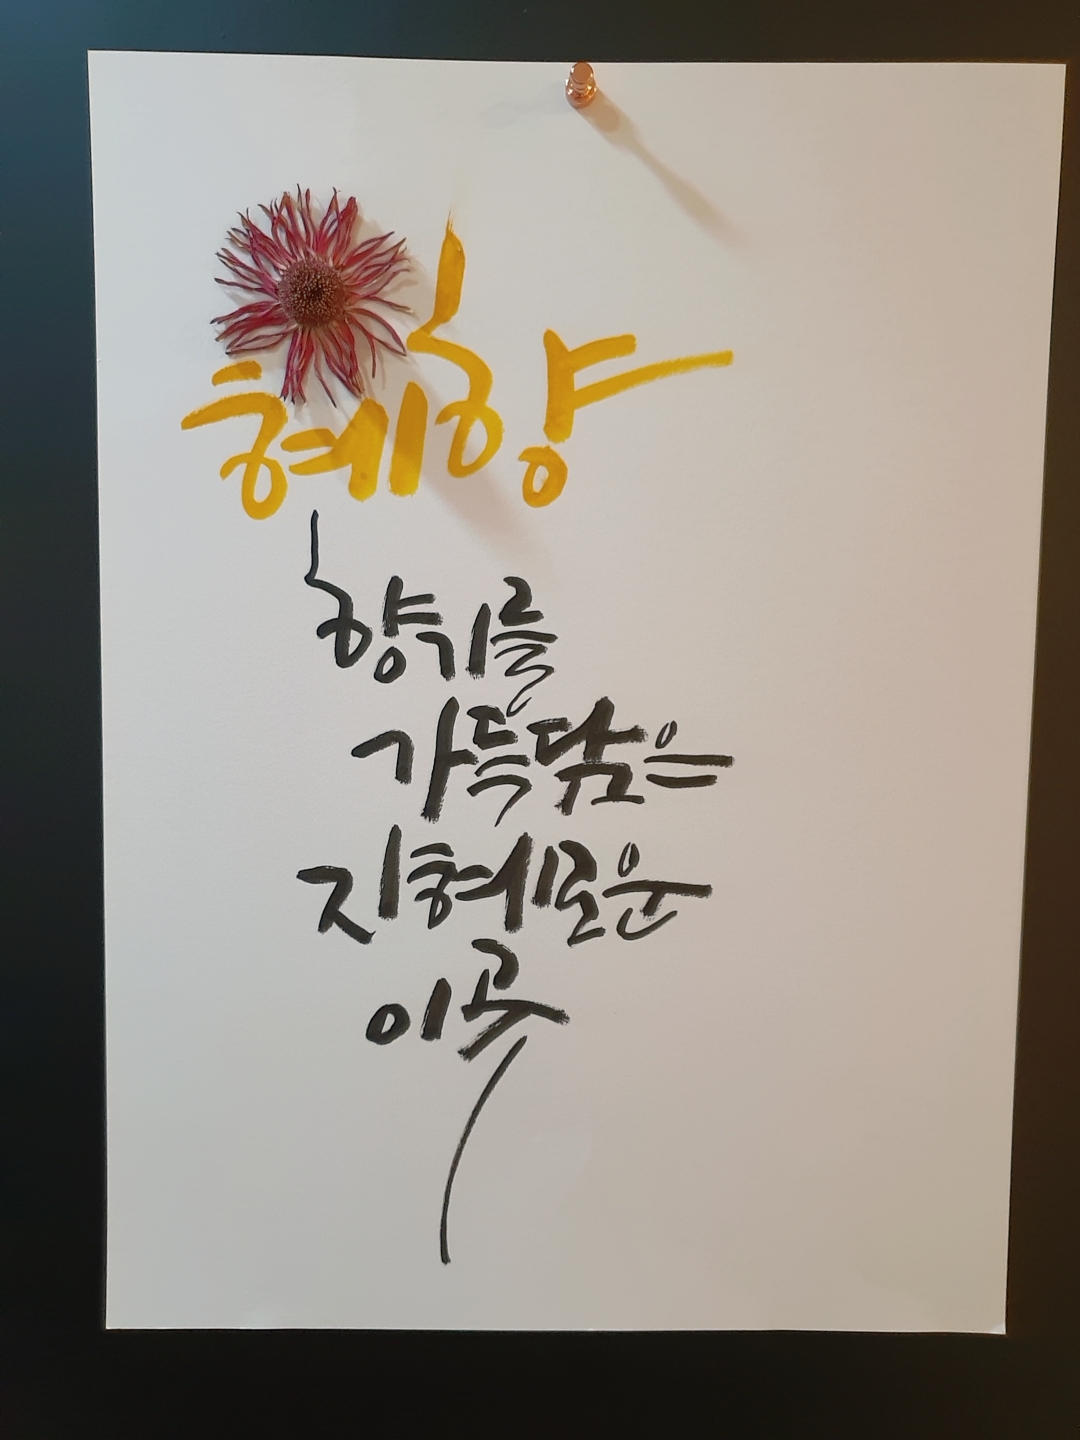 혜향
향기를
가득담은
지혜로운
이곳